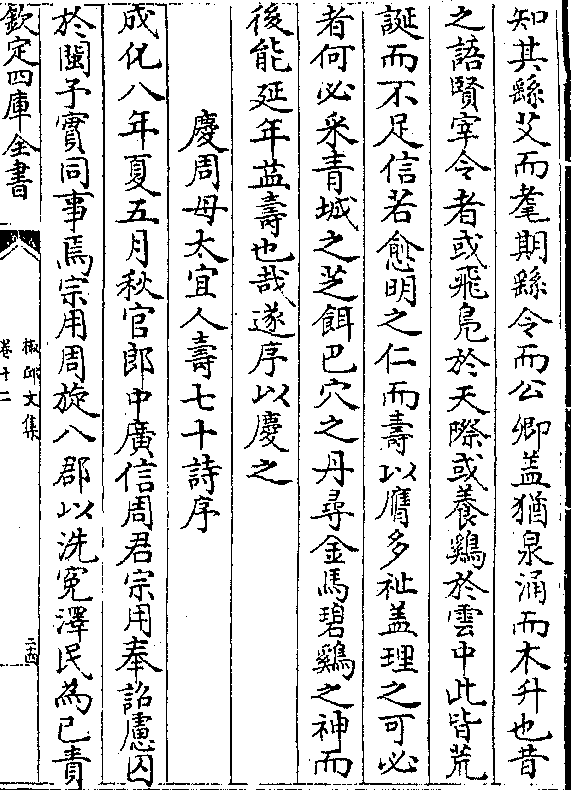 知其繇艾而耄期繇令而公卿盖猶泉涌而木升也昔
之語賢宰令者或飛鳬於天際或養鷄於雲中此皆荒
誕而不足信若愈明之仁而壽以膺多祉盖理之可必
者何必采青城之芝餌巴穴之丹尋金馬碧鷄之神而
後能延年葢壽也哉遂序以慶之
慶周母太宜人壽七十詩序
成化八年夏五月秋官郎中廣信周君宗用奉詔慮囚
於閩予實同事焉宗用周旋八郡以洗寃澤民為已責
欽定四庫全書
椒邱文集
卷十二
二十四